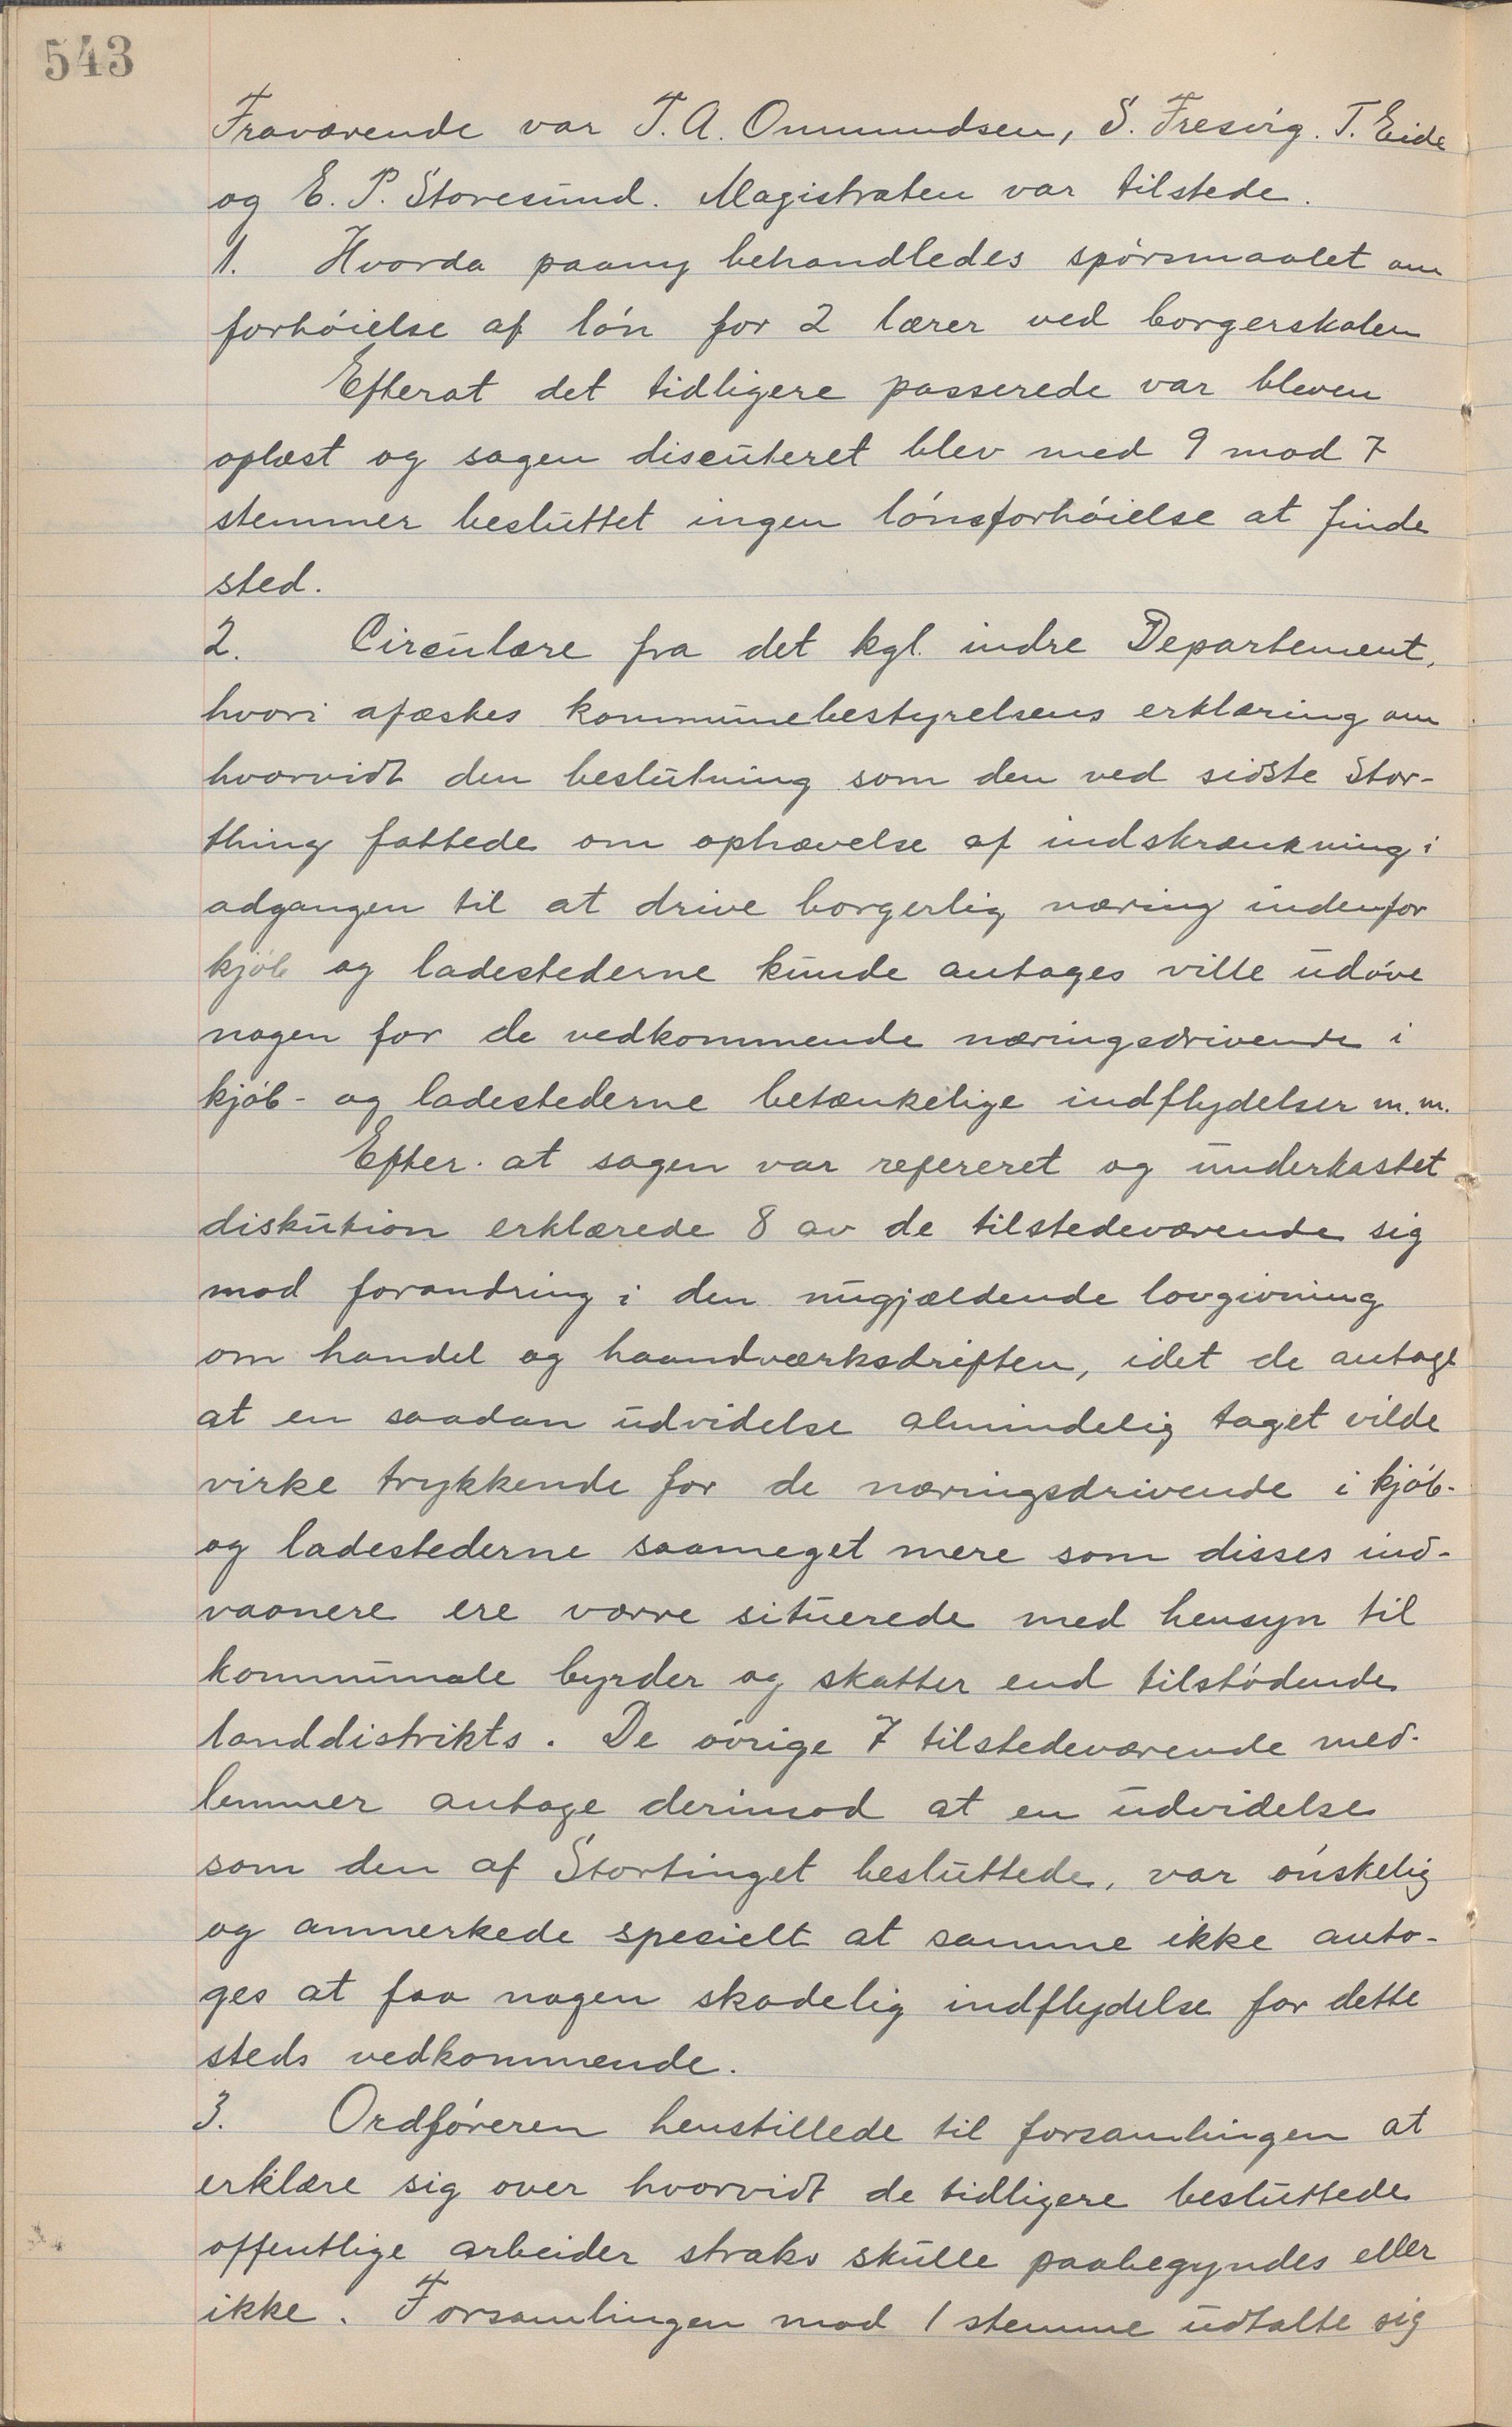 543
Fraværende var T. A. Ommundsen, S. Fresvig. T. Eide
og E. P. Storesund. Magistraten var tilstede.
1. Hvorda paany behandledes spørsmaalet om
forhøielse af løn for 2 lærer ved borgerskolen
Efterat det tidligere passerede var bleven
oplæst og sagen discuteret blev med 9 mod 7
stemmer besluttet ingen lønsforhøielse at finde
sted.
2. Circulære fra det kgl. indre Departement,
hvori afæskes kommunebestyrelsens erklæring om
hvorvidt den beslutning som den ved sidste Stor-
thing fattede om ophævelse af indskrænkning i
adgangen til at drive borgerlig næring indenfor
kjøb og ladestederne kunde antages ville udøve
nogen for de vedkommende næringsdrivende i
kjøb- og ladestederne betænkelige indflydelser m.m.
Efter at sagen var refereret og underkastet
diskution erklærede 8 av de tilstedeværende sig
mod forandring i den nugjældende lovgivning
om handel og haandværksdriften, idet de antoge
at en saadan udvidelse almindelig taget vilde
virke trykkende for de næringsdrivende i kjøb-
og ladestederne saameget mere som disses ind-
vaanere ere værre situerede med hensyn til
kommunale byrder og skatter end tilstødende
landdistrikts. De øvrige 7 tilstedeværende med-
lemmer antoge derimod at en udvidelse
som den af Stortinget besluttede, var ønskelig
og anmerkede spesielt at samme ikke anto-
ges at faa nogen skadelig indflydelse for dette
steds vedkommende.
3. Ordføreren henstillede til forsamlingen at
erklære sig over hvorvidt de tidligere besluttede
offentlige arbeider straks skulle paabegyndes eller
ikke. Forsamlingen mod 1 stemme udtalte sig